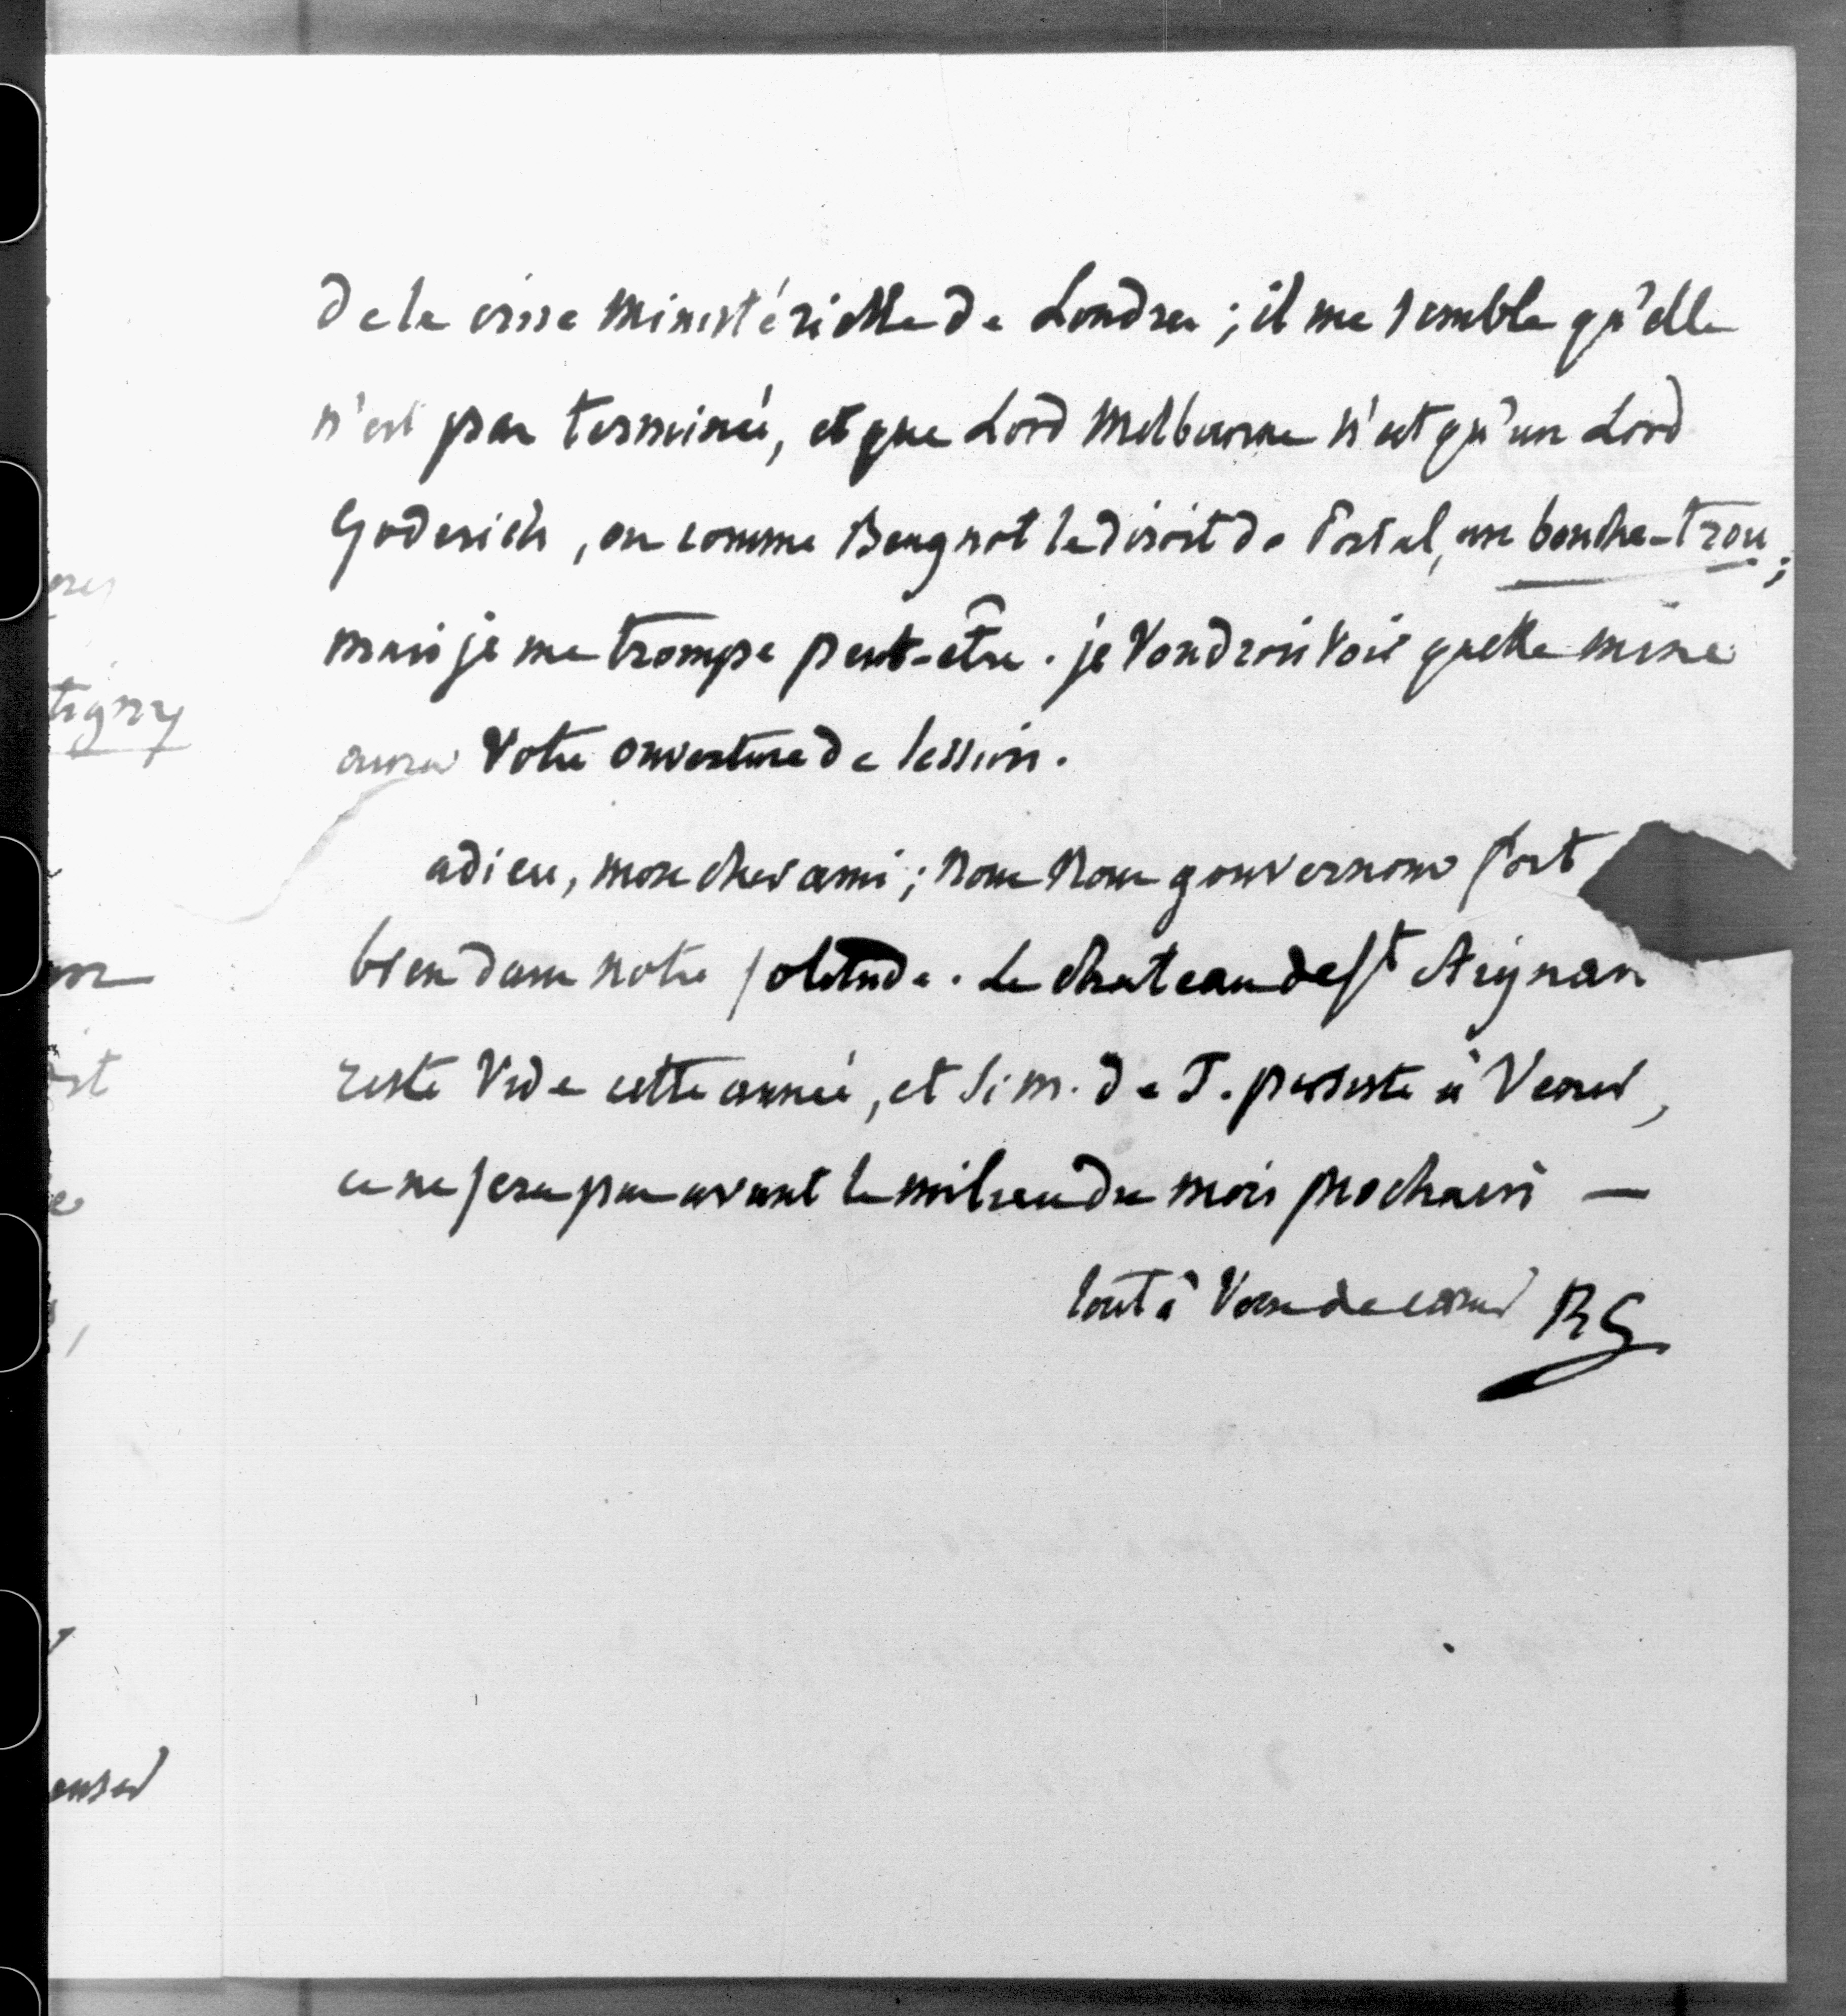 de la crise ministérielle de Londres ; il me semble qu'elle
n'est pas terminée, et que Lord Melbourne n'est qu'un Lord
Goderich, ou comme Beugnot le disoit de Portal, un bouche-trou ;
mais je me trompe peut-être . je voudrois voir quelle mine
aura votre ouverture de session .
adieu, mon cher ami ; nous nous gouvernons fort
bien dans notre solitude . Le chateau de St Aignan
reste vide cette année, et si m. de T. persiste à venir,
ce ne sera pas avant le milieu du mois prochain —
tout à vous de cœur RC
tigny